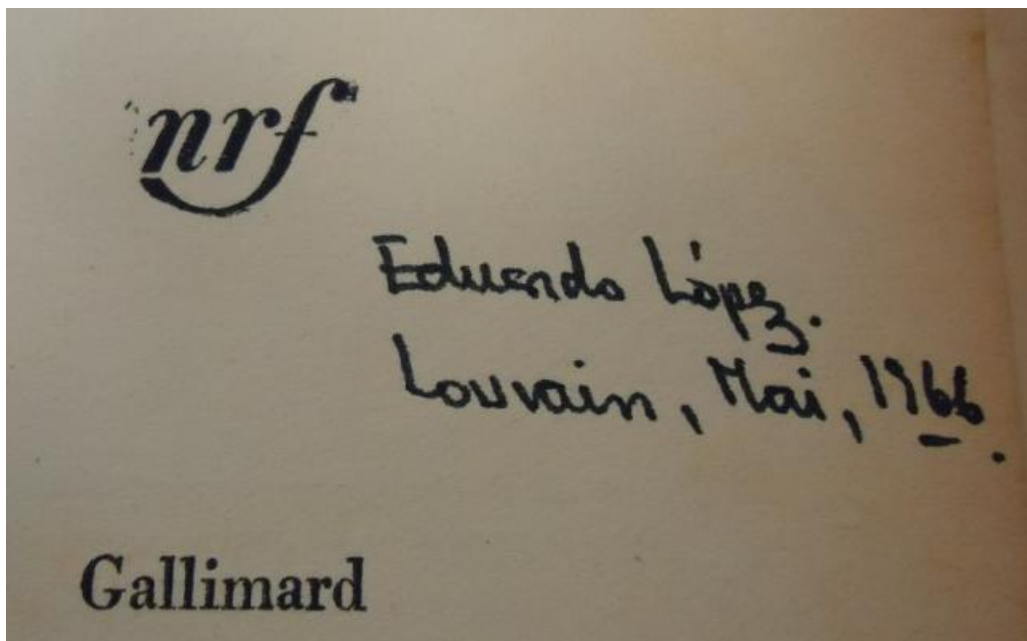 nrf
Eduardo López.
Louvain, Mai, 1966.
Gallimard